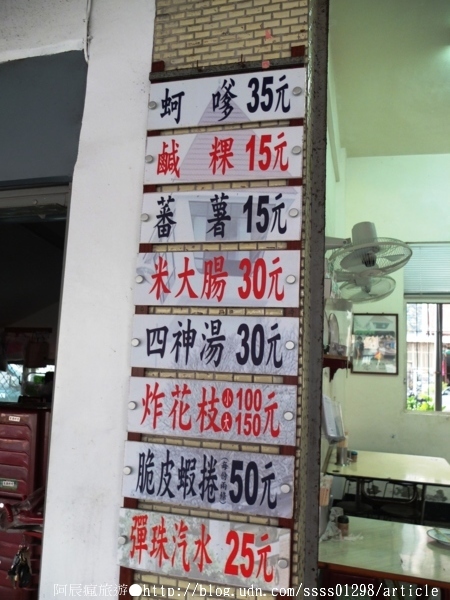 蚵嗲 35元
鹹粿 15元
蕃薯 15元
米大腸 30元
四神湯 30元
炸花枝 小100
大150元
脆皮蝦捲 50元
彈珠汽水 25元
阿辰瘋旅遊●http://blog.udn.com/ssss01298/article